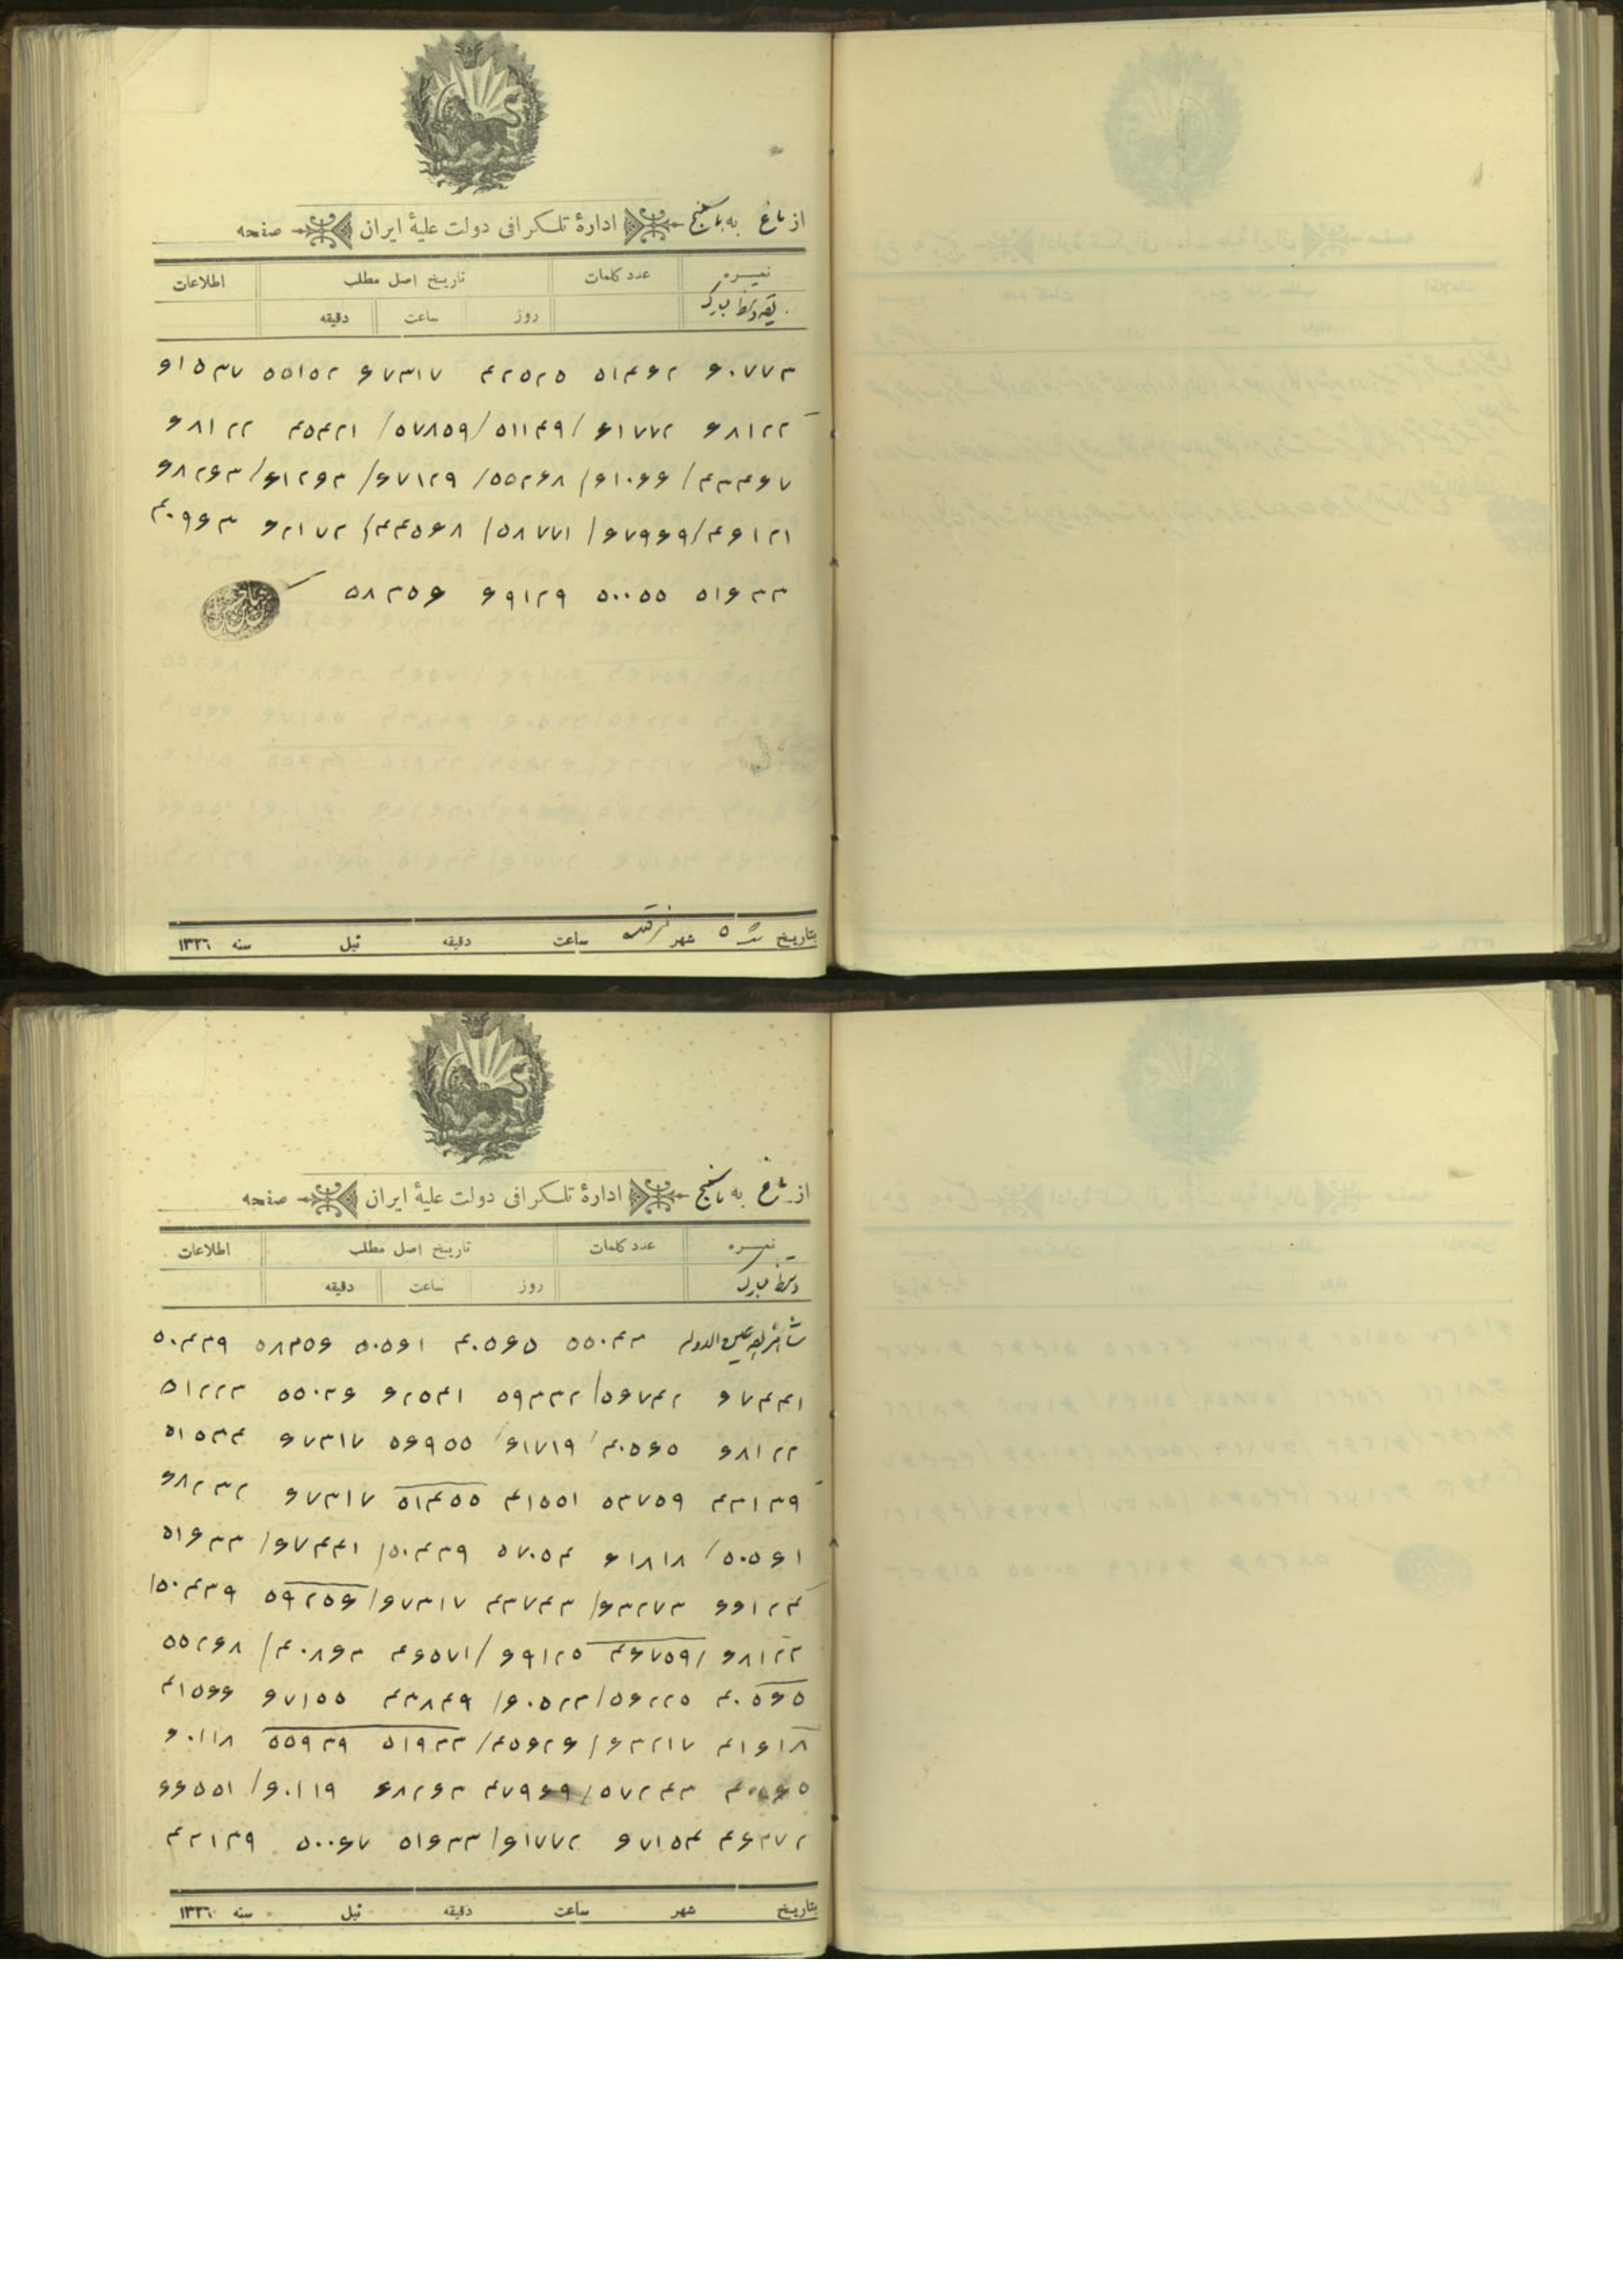 از باغ به باسمنج ادارهٔ تلگرافی دولت علیهٔ ایران صفحه
نمره عدد کلمات تاریخ اصل مطلب اطلاعات
بقیه دستخط مبارک روز ساعت دقیقه
۶۰۷۷۳ ۵۱۴۶۲ ۴۲۵۲۵ ۶۷۳۱۷ ۵۵۱۵۲ ۶۱۵۳۷
۶۸۱۲۲ ۶۱۷۷۲ / ۵۱۱۴۹ / ۵۷۸۵۹ / ۴۵۴۲۱ ۶۸۱۲۲
۴۳۴۶۷ / ۶۱۰۶۶ / ۵۵۲۶۸ / ۶۷۱۲۹ / ۶۱۲۶۳ / ۶۸۲۶۳
۴۶۱۲۱ / ۶۷۹۶۹ / ۵۸۷۷۱ / ۴۴۵۶۸ / ۶۲۱۷۲ ۴۰۹۶۳
۵۱۶۳۳ ۵۰۰۵۵ ۶۹۱۲۹ ۵۸۳۵۶
بتاریخ ۵ شهر ساعت دقیقه قبل سنه ۱۳۲٦
از باغ به باسمنج ادارهٔ تلگرافی دولت علیهٔ ایران صفحه
نمره عدد کلمات تاریخ اصل مطلب اطلاعات
دستخط مبارک روز ساعت دقیقه
عین الدوله ۵۵۰۴۳ ۴۰۵۶۵ ۵۰۵۶۱ ۵۸۳۵۶ ۵۰۴۳۹
۶۷۴۴۱ ۵۶۷۴۲ / ۵۹۳۳۲ ۶۲۵۴۱ ۵۵۰۳۶ ۵۱۲۲۳
۶۸۱۲۲ ۴۰۵۶۵ / ۶۱۷۱۹ / ۵۶۹۵۵ ۶۷۳۱۷ ۵۱۵۳۴
۴۳۱۳۹ ۵۳۷۵۹ ۴۱۵۵۱ ۵۱۴۵۵ ۶۷۳۱۷ ۶۸۲۳۲
۵۰۵۶۱ / ۶۱۸۱۸ ۵۷۰۵۴ ۵۰۴۳۹ / ۶۷۴۴۱ / ۵۱۶۳۳
۶۶۱۲۴ ۶۳۲۷۳ / ۴۳۷۴۳ ۶۷۳۱۷ / ۵۹۲۵۶ ۵۰۴۳۹ /
۶۸۱۲۲ / ۴۶۷۵۹ ۶۹۱۲۵ / ۴۶۵۷۱ ۴۰۸۶۳ / ۵۵۲۶۸
۴۰۵۶۵ ۵۶۲۲۵ / ۶۰۵۲۳ / ۴۳۸۴۹ ۶۷۱۵۵ ۴۱۵۶۶
۴۱۶۱۸ ۶۳۲۱۷ / ۴۵۶۲۶ / ۵۱۹۳۳ ۵۵۹۳۹ ۶۰۱۱۸
۴۰۵۶۵ ۵۷۲۴۳ / ۴۷۹۶۹ ۶۸۲۶۳ ۶۰۱۱۹ / ۶۶۵۵۱
۴۶۳۷۲ ۶۷۱۵۴ ۶۱۷۷۲ / ۵۱۶۳۳ ۵۰۰۶۷ ۴۳۱۳۹
بتاریخ شهر ساعت دقیقه قبل سنه ۱۳۲٦